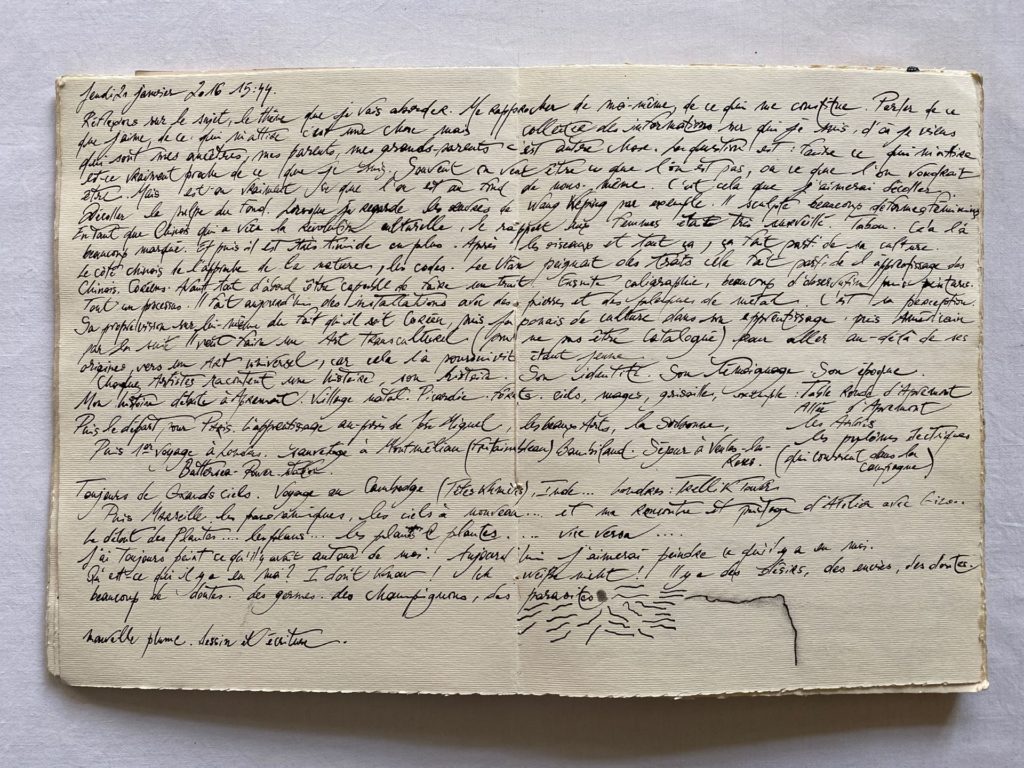 Jeudi 21 janvier 2016 15:44.
Réflexions sur le sujet, le thème que je vais aborder. Me Rapprocher de moi-même, de ce qui me constitue. Parler de ce
que j'aime, de ce qui m'attire c'est une chose mais collecter des informations sur qui je suis, d'où je viens
qui sont mes ancêtres, mes parents, mes grands-parents c'est autre chose. La question est : faire ce qui m'attire
est-ce vraiment proche de ce que je suis. Souvent on veut être ce que l'on est pas, ou ce que l'on voudrait
être. Mais est-on vraiment sûr que l'on est au fond de nous-même. C'est cela que j'aimerai décoller
Décoller la pulpe du fond. Lorsque je regarde les œuvres de Wang Keping par exemple. Il sculpte beaucoup de formes féminines
En tant que Chinois qui a vécu la Révolution culturelle, le rapport aux Femmes était très surveillé Tabou. Cela l'a
beaucoup marqué. Et puis il est très timide en plus. Après les oiseaux et tout ça, ça fait parti de sa culture
Le côté chinois de l'approche de la nature, les codes. Lee Ufan peignait des traits cela fait parti de l'apprentissage des
Chinois. Coréens. Avant tout d'abord être capable de faire un trait. Ensuite caligraphie, beaucoup d'observation puis peinture.
Tout un processus. Il fait aujourd'hui des installations avec des pierres et des plaques de métal. C'est sa perception.
Sa propre vision sur lui-même du fait qu'il soit Coréen, puis japonais de culture dans son apprentissage. puis Américain
par la suite. Il veut faire un Art Transculturel (pour ne pas être catalogué) pour aller au-delà de ses
origines, vers un Art universel, car cela l'a poursuivit étant jeune.
Chaque Artistes racontent une histoire son histoire. Son identité. Son Témoignage. Son époque.
Mon histoire débute à Apremont. Village natal. Picardie. Forêts. ciels, nuages, grisaille, exemple : Table Ronde d'Apremont
Allée d'Apremont
Puis le départ pour Paris. L'apprentissage au-près de José Miguel, les beaux Arts, la Sorbonne, les Arbres
les pylônes électriques
Puis 1er voyage à Londres. Sauvetage à Montmélian (Fontainebleau) Bambiland. Séjour à
(qui courrent dans la
Battersea Power Station.
campagne)
Toujours de Grands ciels. Voyage au Cambodge (Têtes Khmères), Inde... Londres : Trellik Tower
Puis Marseille, les panoramiques, les ciels à nouveau... et ma Rencontre et partage d'Atelier avec
Le début des Plantes.... les fleurs... les plants & plantes..... vice versa.....
J'ai toujours peint ce qu'il y avait autour de moi. Aujourd'hui j'aimerai peindre ce qu'il y a en moi.
Qu'est-ce qu'il y a en moi? I don't know! Ich weiße nicht!! Il y a des Désirs, des envies, des doutes.
beaucoup de doutes. des germes. des champignons, des parasites
nouvelle plume. Dessin et écriture.